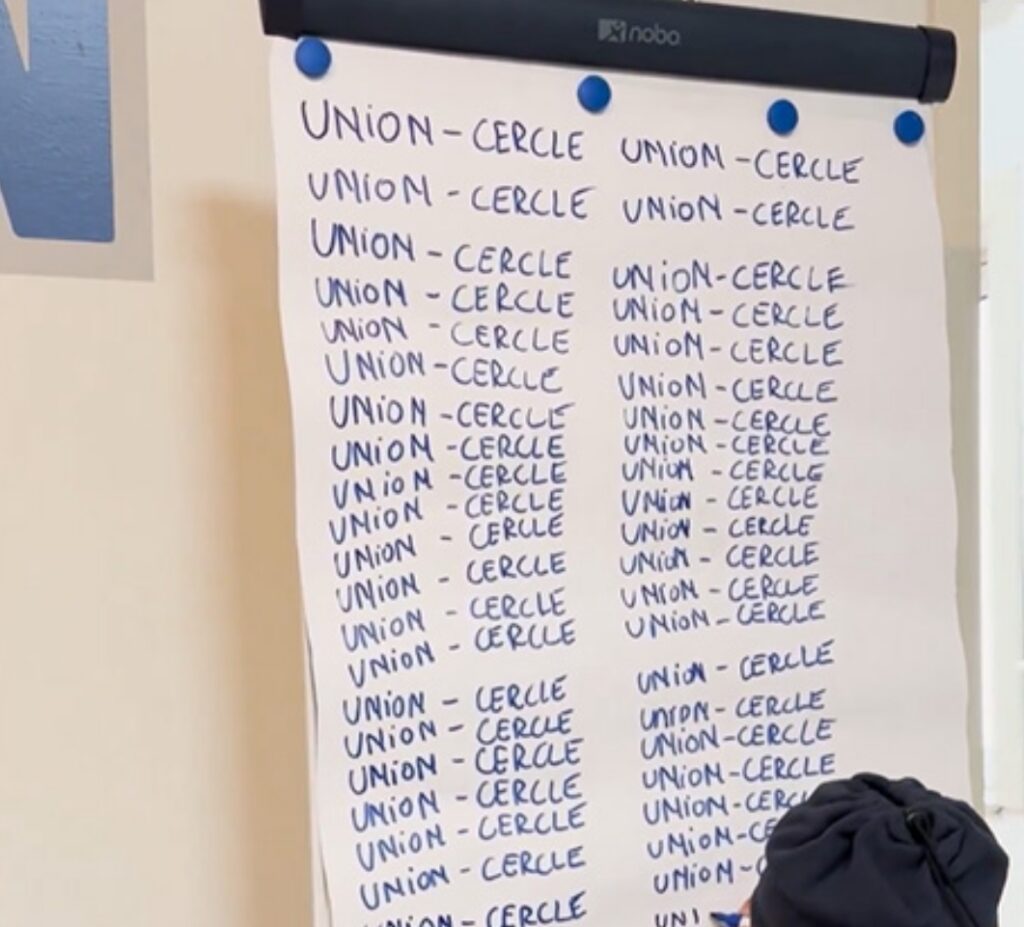 nobo
UNiON - CERCLE
UNiON - CERCLE
UNiON - CERCLE
UNiON - CERCLE
UNiON - CERCLE
UNiON - CERCLE
UNiON - CERCLE
UNiON - CERCLE
UNiON - CERCLE
UNiON - CERCLE
UNiON - CERCLE
UNiON - CERCLE
UNiON - CERCLE
UNiON - CERCLE
UNiON - CERCLE
UNiON - CERCLE
UNiON - CERCLE
UNiON - CERCLE
UNiON - CERCLE
UNiON - CERCLE
UNiON - CERCLE
UNiON - CERCLE
UNiON - CERCLE
UNiON - CERCLE
UNiON - CERCLE
UNiON - CERCLE
UNiON - CERCLE
UNiON - CERCLE
UNiON - CERCLE
UNiON - CERCLE
UNiON - CERCLE
UNiON - CERCLE
UNiON - CERCLE
UNiON - CERCLE
UNiON - CERCLE
UNiON - CERCLE
UNiON - CERCLE
UNiON - CERCLE
UNiON - CERCLE
UNiON - CERC
UNiON - CE
UNiON -
UNI